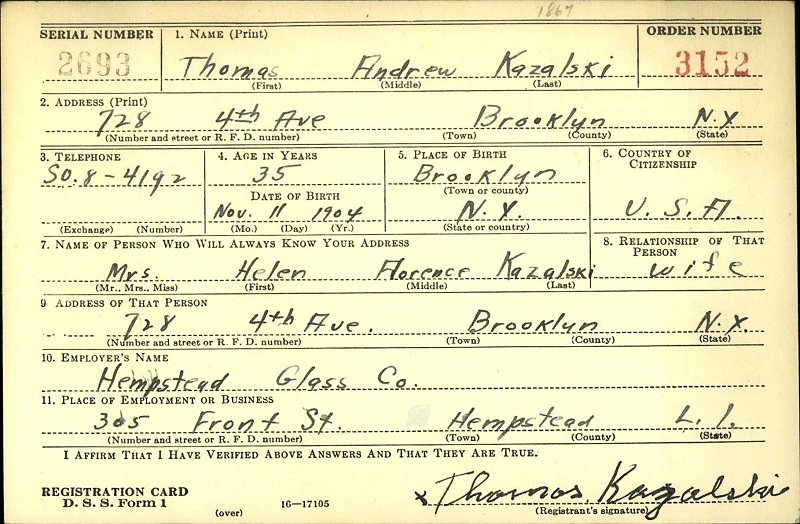 1867
SERIAL NUMBER 1. NAME (Print) ORDER NUMBER
2693 Thomas Andrew Kazalski 3152
(First) (Middle) (Last)
2. ADDRESS (Print)
728 4th Ave Brooklyn N.Y
(Number and street or R. F. D. number) (Town) (County) (State)
3. TELEPHONE 4. AGE IN YEARS 5. PLACE OF BIRTH 6. COUNTRY OF CITIZENSHIP
SO.8-4192 35 Brooklyn
(Town or county)
DATE OF BIRTH
Nov. 11 1904 N.Y. U.S.A.
(Exchange) (Number) (Mo.) (Day) (Yr.) (State or country)
7. NAME OF PERSON WHO WILL ALWAYS KNOW YOUR ADDRESS 8. RELATIONSHIP OF THAT PERSON
Mrs. Helen Florence Kazalski wife
(Mr., Mrs., Miss) (First) (Middle) (Last)
9 ADDRESS OF THAT PERSON
728 4th Ave. Brooklyn N.Y.
(Number and street or R. F. D. number) (Town) (County) (State)
10. EMPLOYER'S NAME
Hempstead Glass Co.
11. PLACE OF EMPLOYMENT OR BUSINESS
305 Front St. Hempstead L.I.
(Number and street or R. F. D. number) (Town) (County) (State)
I AFFIRM THAT I HAVE VERIFIED ABOVE ANSWERS AND THAT THEY ARE TRUE.
x Thomas Kazalski
REGISTRATION CARD
D. S. S. Form 1 (over) 16-17105 (Registrant's signature)